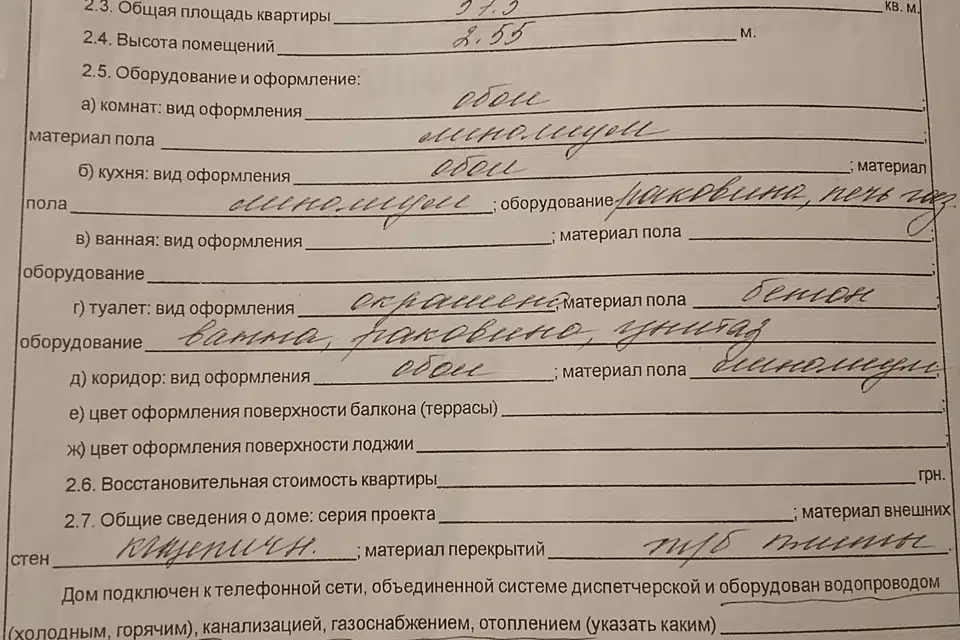 2.3. Общая площадь квартиры кв. м.
2.4. Высота помещений 2.55 м.
2.5. Оборудование и оформление:
а) комнат: вид оформления обои ;
материал пола линолиум ;
б) кухня: вид оформления обои ; материал
пола линолиум ; оборудование раковина, печь газ
в) ванная: вид оформления ; материал пола ;
оборудование ;
г) туалет: вид оформления окрашено ; материал пола бетон
оборудование ванна, раковина, унитаз
д) коридор: вид оформления обои ; материал пола линолиум ;
е) цвет оформления поверхности балкона (террасы) ;
ж) цвет оформления поверхности лоджии ;
2.6. Восстановительная стоимость квартиры грн.
2.7. Общие сведения о доме: серия проекта ; материал внешних
стен кирпичн. ; материал перекрытий ж/б плиты .
Дом подключен к телефонной сети, объединенной системе диспетчерской и оборудован водопроводом
(холодным, горячим), канализацией, газоснабжением, отоплением (указать каким)